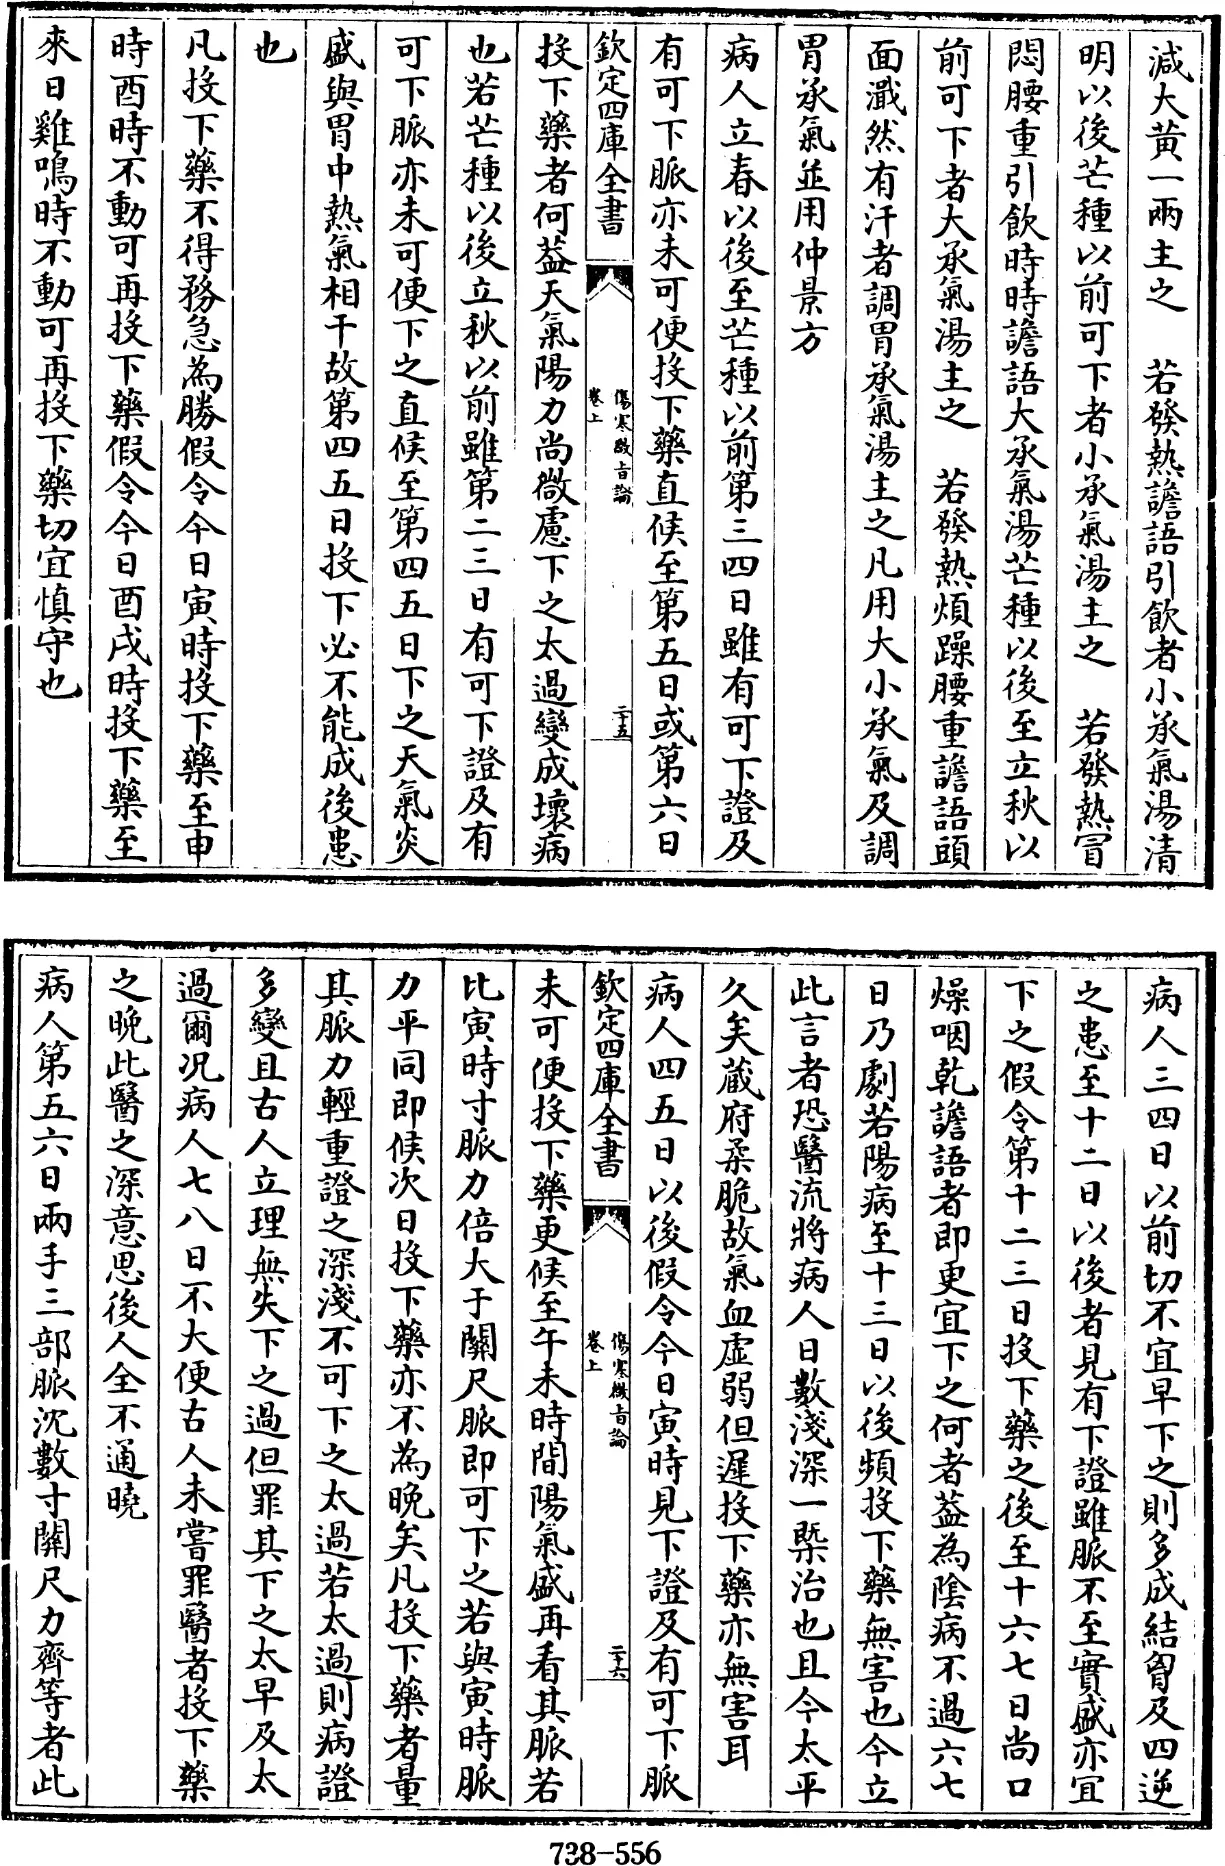 減大黄一兩主之　若發熱譫語引飲者小承氣湯清
明以後芒種以前可下者小承氣湯主之　若發熱冒
悶腰重引飲時時譫語大承氣湯芒種以後至立秋以
前可下者大承氣湯主之　若發熱煩躁腰重譫語頭
面濈然有汗者調胃承氣湯主之凡用大小承氣及調
胃承氣並用仲景方
病人立春以後至芒種以前第三四日雖有可下證及
有可下脈亦未可便投下藥直候至第五日或第六日
欽定四庫全書
傷寒微旨論
卷上
二十五
投下藥者何葢天氣陽力尚微慮下之太過變成壞病
也若芒種以後立秋以前雖第二三日有可下證及有
可下脈亦未可便下之直候至第四五日下之天氣炎
盛與胃中熱氣相干故第四五日投下必不能成後患
也
凡投下藥不得務急為勝假令今日寅時投下藥至申
時酉時不動可再投下藥假令今日酉戌時投下藥至
來日雞鳴時不動可再投下藥切宜慎守也
病人三四日以前切不宜早下之則多成結胷及四逆
之患至十二日以後者見有下證雖脈不至實盛亦宜
下之假令第十二三日投下藥之後至十六七日尚口
燥咽乾譫語者即更宜下之何者葢為陰病不過六七
日乃劇若陽病至十三日以後頻投下藥無害也今立
此言者恐醫流將病人日數淺深一槩治也且今太平
久矣藏府柔脆故氣血虛弱但遲投下藥亦無害耳
病人四五日以後假令今日寅時見下證及有可下脈
欽定四庫全書
傷寒微旨論
卷上
二十六
未可便投下藥更候至午未時間陽氣盛再看其脈若
比寅時寸脈力倍大于關尺脈即可下之若與寅時脈
力平同即候次日投下藥亦不為晩矣凡投下藥者量
其脈力輕重證之深淺不可下之太過若太過則病證
多變且古人立理無失下之過但罪其下之太早及太
過爾況病人七八日不大便古人未嘗罪醫者投下藥
之晩此醫之深意思後人全不通曉
病人第五六日兩手三部脈沈數寸關尺力齊等者此
738-556